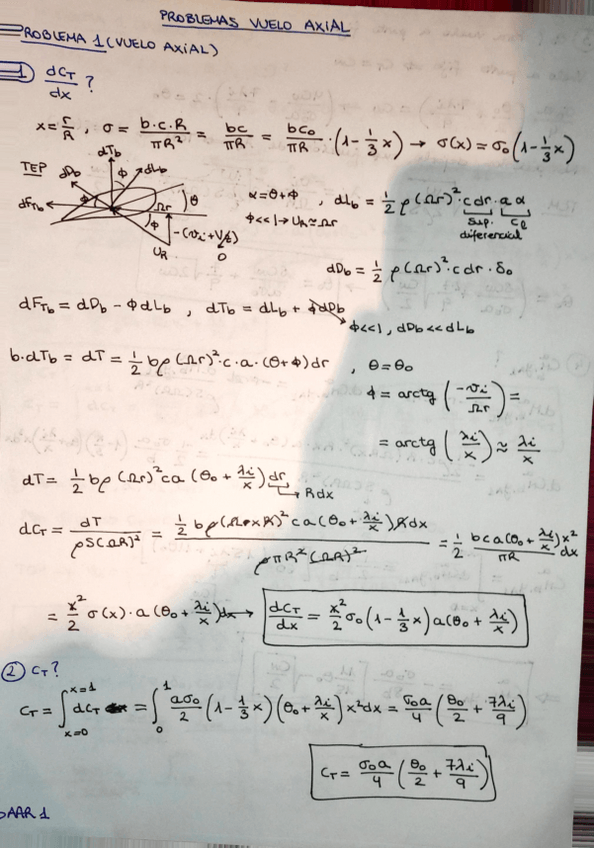 PROBLEMAS VUELO AXIAL
PROBLEMA 1 (VUELO AXIAL)
1) dC_T/dx ?
x = r/R , σ = b·c·R/πR² = bc/πR = bc₀/πR · (1 - 1/3 x) → σ(x) = σ₀ (1 - 1/3 x)
TEP dD_b dT_b ϕ dL_b
dF_Tb ϕ Ωr θ
ϕ -(v_i + V_z) 0
U_R
α = θ + ϕ , dL_b = 1/2 ρ (Ωr)² · c dr · a α
ϕ << 1 → U_R ≈ Ωr
Sup. diferencial C_l
dD_b = 1/2 ρ (Ωr)² · c dr · δ₀
dF_Tb = dD_b - ϕ dL_b , dT_b = dL_b + ϕ dD_b
ϕ << 1, dD_b << dL_b
b · dT_b = dT = 1/2 bρ (Ωr)² · c · a · (θ + ϕ) dr , θ = θ₀
ϕ = arctg (-v_i/Ωr) =
= arctg (λ_i/x) ≈ λ_i/x
dT = 1/2 bρ (Ωr)² c a (θ₀ + λ_i/x) dr
→ R dx
dC_T = dT/ρS(ΩR)² = 1/2 bρ (Ω·x R)² c a (θ₀ + λ_i/x) R dx / ρπR² (ΩR)² = 1/2 bca (θ₀ + λ_i/x) x²/πR dx
= x²/2 σ(x) · a (θ₀ + λ_i/x) dx → dC_T/dx = x²/2 σ₀ (1 - 1/3 x) a (θ₀ + λ_i/x)
2) C_T ?
C_T = ∫_{x=0}^{x=1} dC_T = ∫₀¹ aσ₀/2 (1 - 1/3 x) (θ₀ + λ_i/x) x² dx = σ₀a/4 (θ₀/2 + 7λ_i/9)
C_T = σ₀a/4 (θ₀/2 + 7λ_i/9)
AAR 1